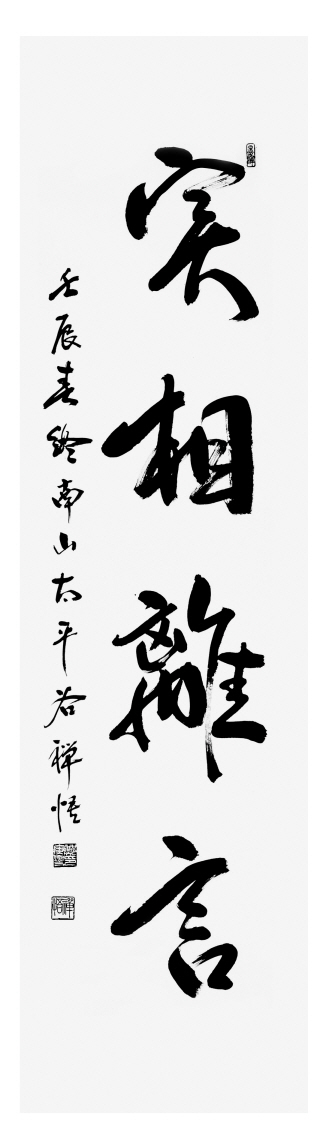 实相離言
壬辰春终南山太平谷禅悟